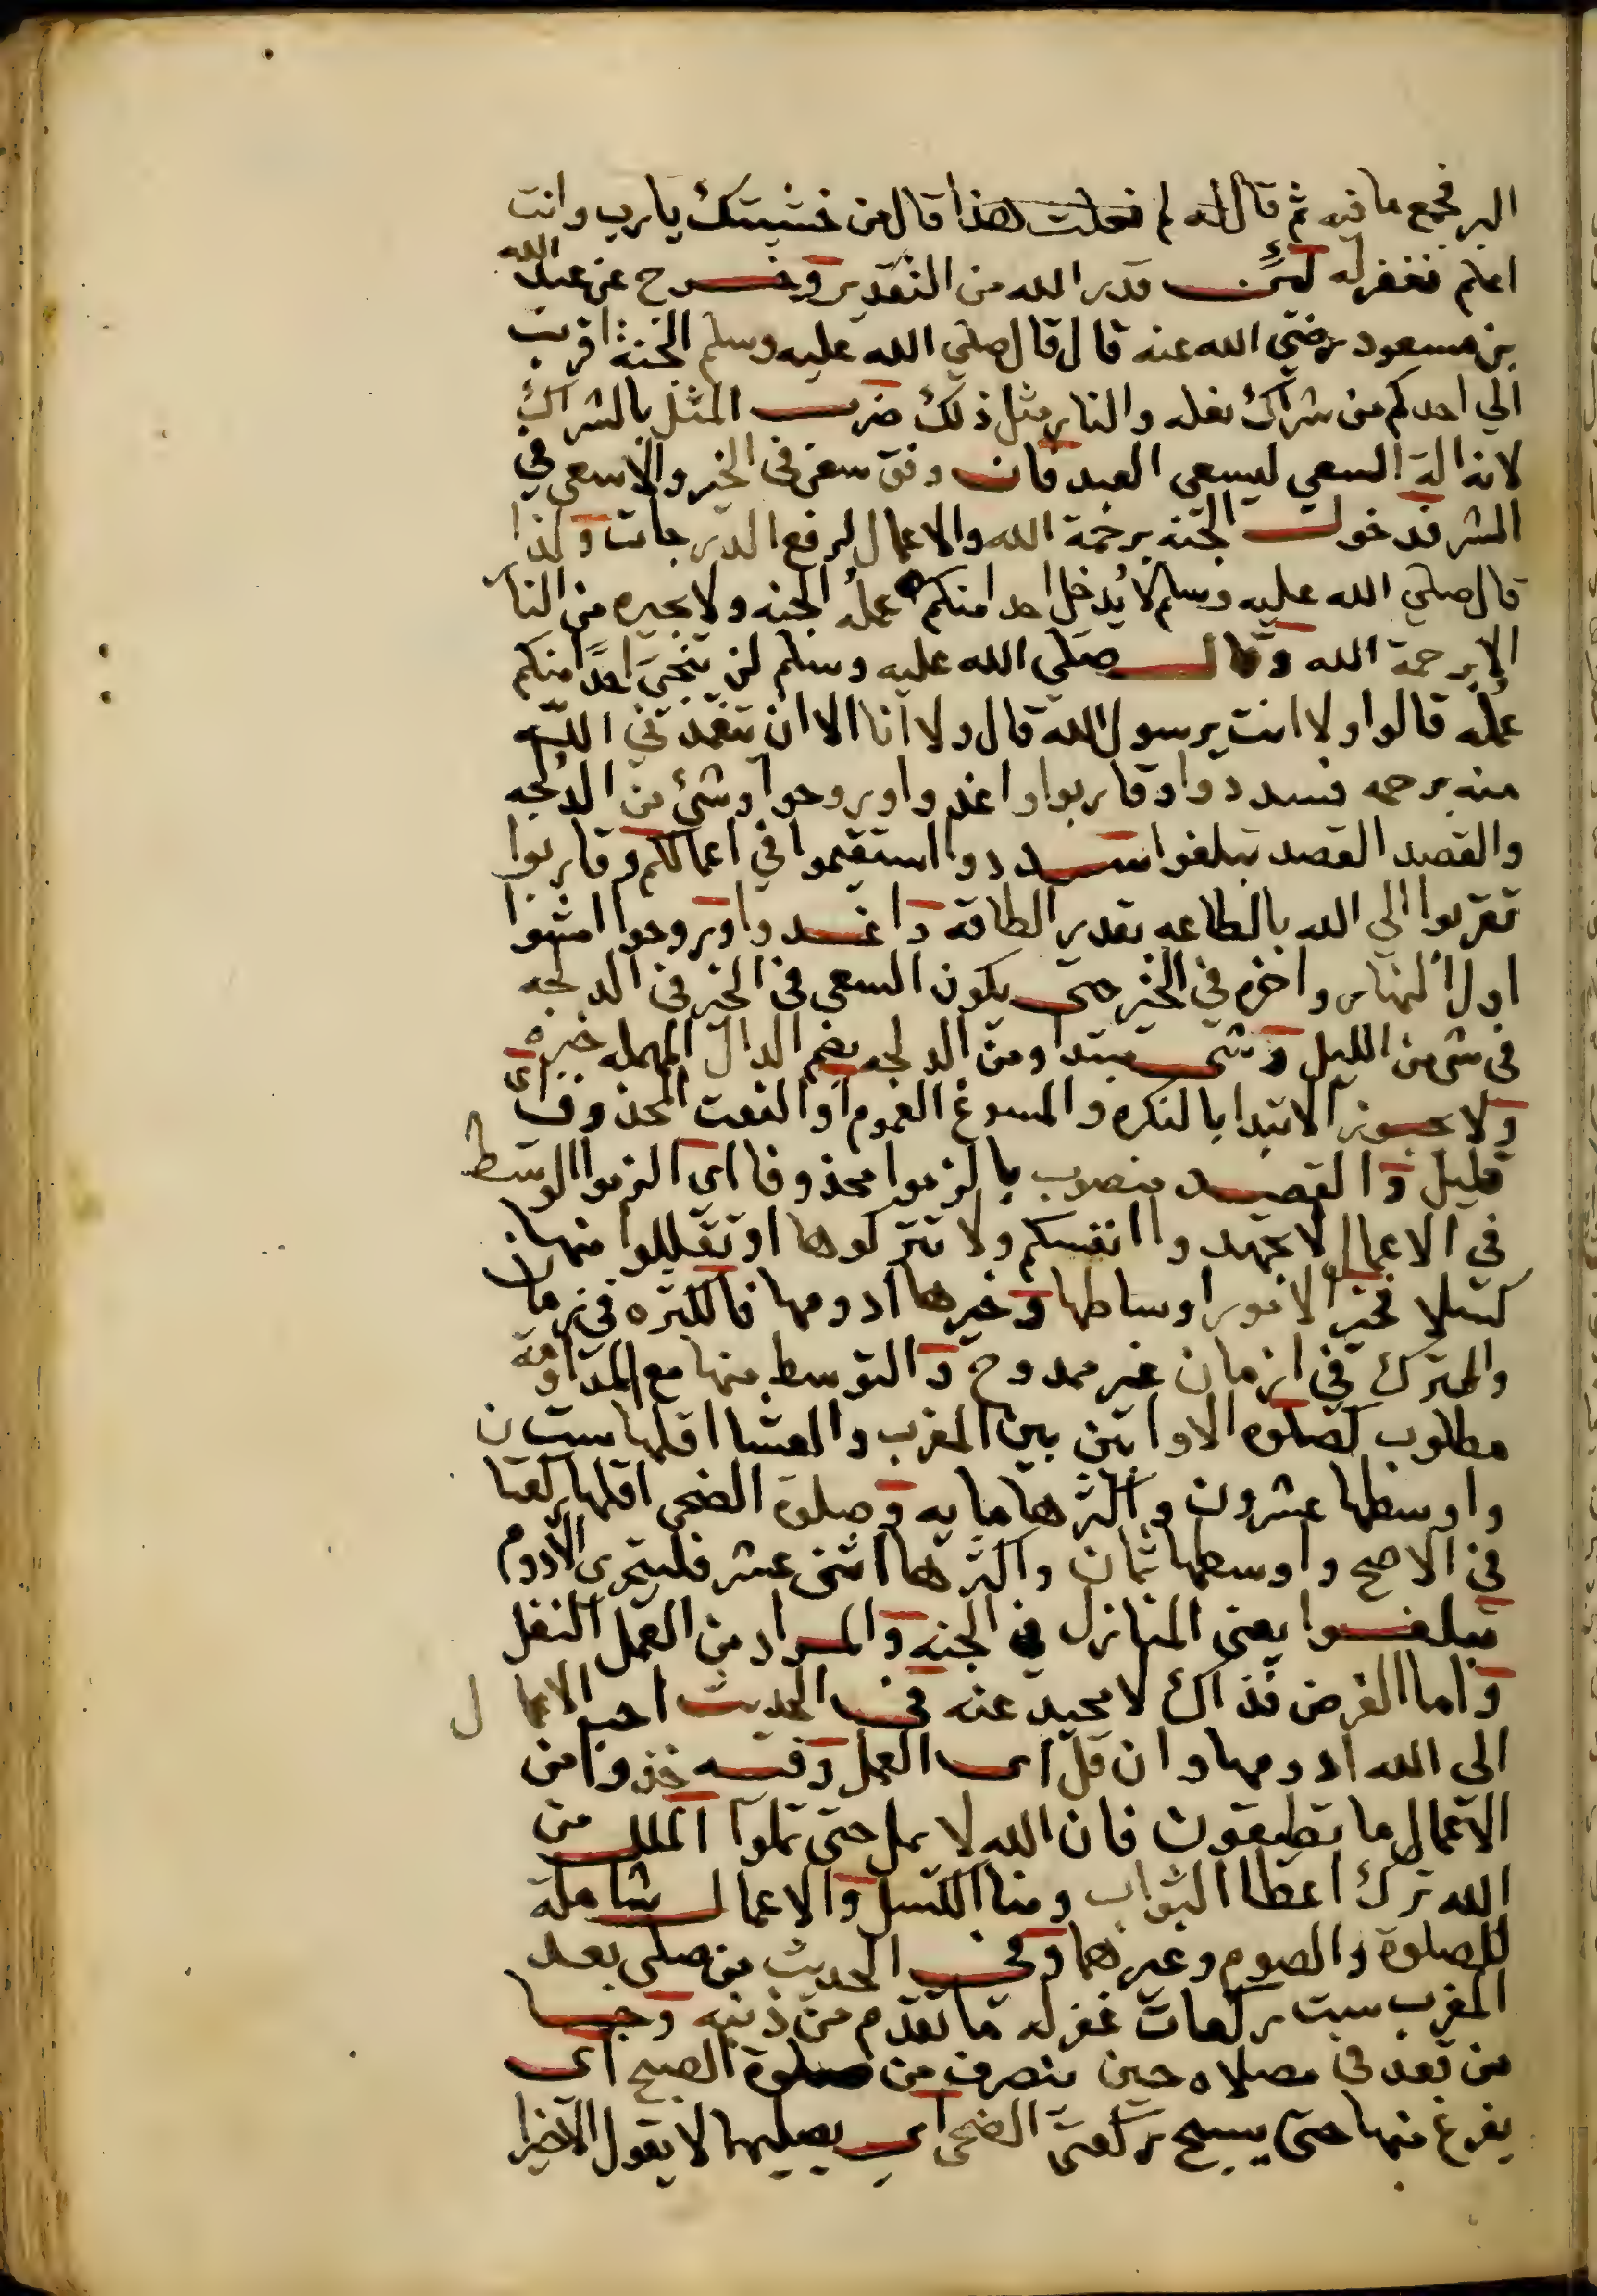 البر فجمع ما فيه ثم قال له لم فعلت هذا قال من خشيتك يا رب وانت
اعلم فغفر له لئن قدر الله من التقدير وخرج عن عبد الله
بن مسعود رضي الله عنه قال قال صلي الله عليه وسلم الجنة اقرب
الي احدكم من شراك نعله والنار مثل ذلك ضرب المثل بالشراك
لانه الة السعي ليسعي العبد فان وفق سعى فى الخير والا سعى في
الشر فدخول الجنة برحمة الله والاعمال لرفع الدرجات ولذا
قال صلي الله عليه وسلم لا يُدخل احدا منكم عملُه الجنه ولا يجيره من النار
الا برحمة الله وقال صلي الله عليه وسلم لن ينجيَ احدًا منكم
عملُه قالوا ولا انت يرسول الله قال ولا انا الا ان يتغمدني الله
منه برحمه فسددوا وقاربوا واغدوا وروحوا وشئ من الدلجه
والقصد القصد تبلغوا سددوا استقيموا في اعمالكم وقاربوا
تقربوا الي الله بالطاعه بقدر الطاقة واغدوا وروحوا امشوا
اول النهار واخره في الخير حتى يكون السعى فى الخير فى الدلجه
فى شى من الليل وشى مبتدا ومن الدلجه بضم الدال المهمله خبره
ولا يجوز الابتدا بالنكره والمسوغ العموم او النعت المحذوف اى
قليل والقصد منصوب بالزموا محذوفا اى الزموا الوسط
في الاعمال لا تجهدوا انفسكم ولا تتركوها او تقللوا منها
كسلا فخير الامور اوساطها وخيرها ادومها فالكثره فى زمان
والترك في ازمان غير ممدوح والتوسط منها مع المداومة
مطلوب كصلوة الاوابين بين المغرب والعشا اقلها ست
واوسطها عشرون واكثرها مايه وصلوة الضحى اقلها ركعتان
في الاصح واوسطها ثمان واكثرها اثنى عشر فليتحرى الادوم
تبلغوا يعنى المنازل في الجنه والمراد من العمل النفل
واما الفرض فذاك لا محيد عنه فى الحديث احب الاعمال
الى الله ادومها وان قل اى العمل وفيه خذوا من
الاعمال ما تطيقون فان الله لا يمل حتى تملوا الملل من
الله ترك اعطا الثواب ومنا الكسل والاعمال شاملة
للصلوة والصوم وغيرهما وفى الحديث من صلى بعد
المغرب ست ركعات غفر له ما تقدم من ذنبه وجا
من قعد فى مصلاه حين ينصرف من صلوة الصبح اى
يفرغ منها حتى يسبح ركعتى الضحى اى يصليها لا يقول الا خيرا